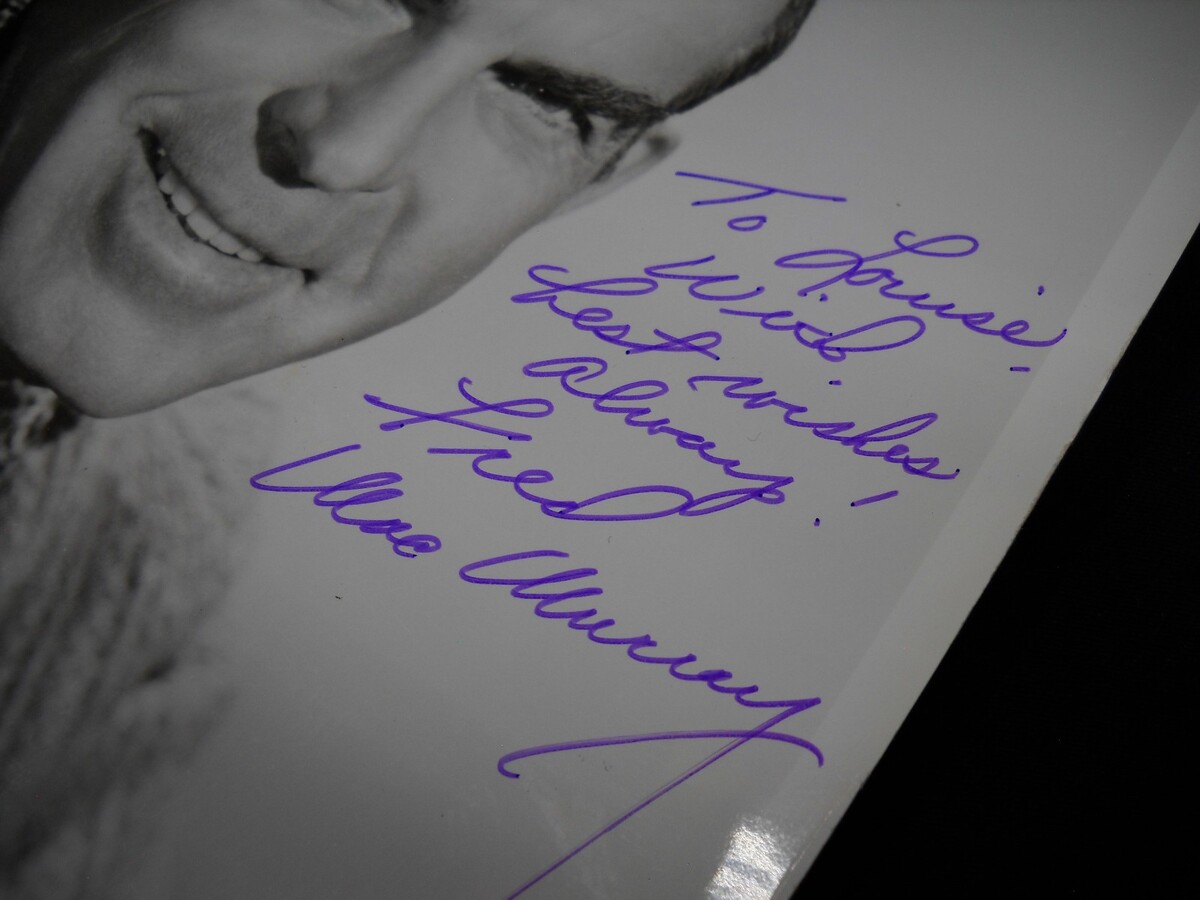 To Louise -
With
best wishes
always !
Fred
Mac Murray